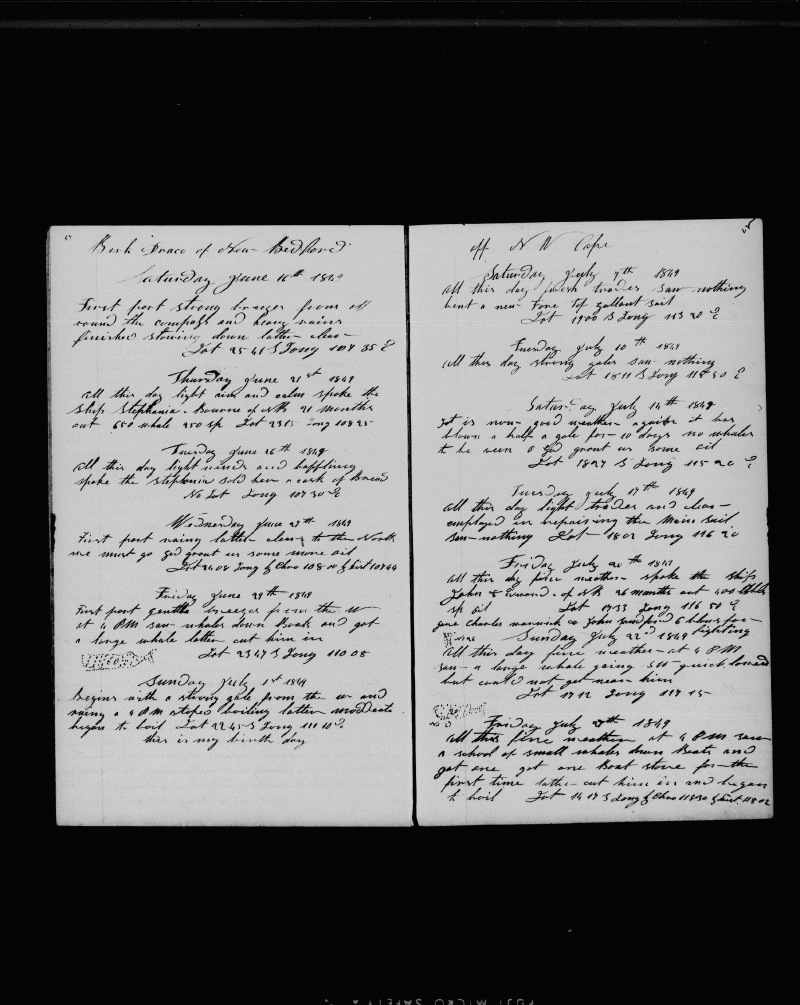 Bark Draco of New Bedford
Saturday June 16th 1849
First part strong breezes from all
round the compass and heavy rains
finished stowing down latter clear
Lat 25 41 S Long 107 35 E
Thursday June 21st 1849
All this day light airs and calm spoke the
Ship Stephania. Bourne of NB 21 months
out 650 whale 250 sp Lat 23 15 Long 108 25
Tuesday June 26th 1849
All this day light winds and baffling
spoke the Stephania sold her a cask of Bread
No Lat Long 107 30 E
Wednesday June 27th 1849
First part rainy latter clear to the North
we must go god grant us some more oil
Lat 24 08 Long by Chro 108 00 by 107 44
Friday June 29th 1849
First part gentle breezes from the W
at 4 PM saw whales down Boats and got
a large whale latter cut him in
Lat 23 47 S Long 110 08
Sunday July 1st 1849
Begins with a strong gale from the w and
rainy a 4 PM stoped boiling latter moderate
began to boil Lat 22 45 S Long 111 10 E.
this is my birth day
off N W Cape
Saturday July 7th 1849
All this day fresh trades saw nothing
bent a new Fore Top gallant sail
Lat 1900 S Long 113 20 E
Tuesday July 10th 1849
All this day strong gales saw nothing
Lat 18 11 S Long 115 50 E
Saturday July 14th 1849
It is now good weather again it has
blown a half a gale for 10 days no whales
to be seen o god grant us some oil
Lat 1827 S Long 115 20 E
Tuesday July 17th 1849
All this day light trades and clear
employed in repairing the Main Sail
saw nothing Lat 1802 Long 116 20
Friday July 20th 1849
All this day fine weather spoke the ship
John & Edward. of NB 26 months out 400 bbls
sp oil Lat 1733 Long 116 50 E
gave Charles warwick & John 6 blows for
fighting
Sunday July 22nd 1849
All this day fine weather at 4 PM
saw a large whale going SW quick lowered
but could not get near him
Lat 1712 Long 117 15
Friday July 27th 1849
All this fine weather at 4 PM saw
a school of small whales down Boats and
got one got one Boat stove for the
first time latter cut him in and began
to boil Lat 14 17 S Long by Chro 118 30 by 118 02